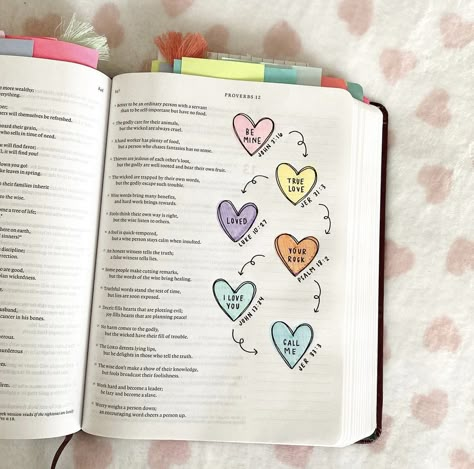 everything.
PROVERBS 12
Better to be an ordinary person with a servant
than to be self-important but have no food.
The godly care for their animals,
but the wicked are always cruel.
A hard worker has plenty of food,
but a person who chases fantasies has no sense.
Thieves are jealous of each other's loot,
but the godly are well rooted and bear their own fruit.
The wicked are trapped by their own words,
but the godly escape such trouble.
Wise words bring many benefits,
and hard work brings rewards.
Fools think their own way is right,
but the wise listen to others.
A fool is quick-tempered,
but a wise person stays calm when insulted.
An honest witness tells the truth;
a false witness tells lies.
Some people make cutting remarks,
but the words of the wise bring healing.
Truthful words stand the test of time,
but lies are soon exposed.
Deceit fills hearts that are plotting evil;
joy fills hearts that are planning peace!
No harm comes to the godly,
but the wicked have their fill of trouble.
The LORD detests lying lips,
but he delights in those who tell the truth.
The wise don't make a show of their knowledge,
but fools broadcast their foolishness.
Work hard and become a leader;
be lazy and become a slave.
Worry weighs a person down;
an encouraging word cheers a person up.
BE
MINE
JOHN 3:16
TRUE
LOVE
JER 31:3
LOVED
LUKE 10:27
YOUR
ROCK
PSALM 18:2
I LOVE
YOU
JOHN 13:34
CALL
ME
JER 33:3
will find you!
leaves in spring.
cancer in his bones.